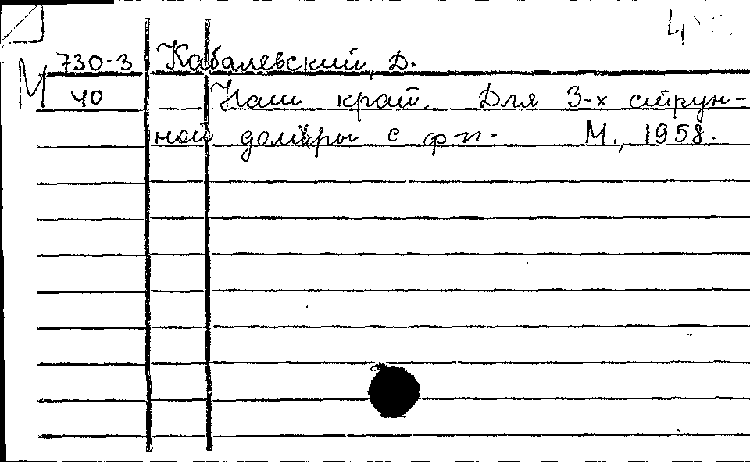 М 730-3 Кабалевский, Д.
40 Наш край. Для 3-х струн-
ной домбры с ф-п. М., 1958.